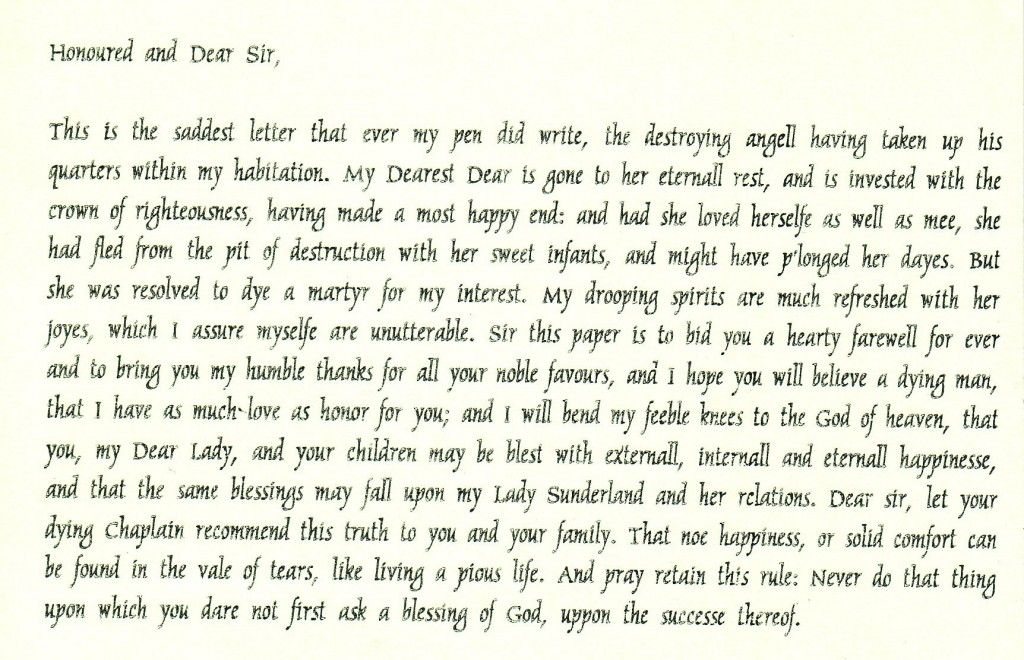 Honoured and Dear Sir,
This is the saddest letter that ever my pen did write, the destroying angell having taken up his
quarters within my habitation. My Dearest Dear is gone to her eternall rest, and is invested with the
crown of righteousness, having made a most happy end: and had she loved herselfe as well as mee, she
had fled from the pit of destruction with her sweet infants, and might have p'longed her dayes. But
she was resolved to dye a martyr for my interest. My drooping spirits are much refreshed with her
joyes, which I assure myselfe are unutterable. Sir this paper is to bid you a hearty farewell for ever
and to bring you my humble thanks for all your noble favours, and I hope you will believe a dying man,
that I have as much love as honor for you; and I will bend my feeble knees to the God of heaven, that
you, my Dear Lady, and your children may be blest with externall, internall and eternall happinesse,
and that the same blessings may fall upon my Lady Sunderland and her relations. Dear sir, let your
dying Chaplain recommend this truth to you and your family. That noe happiness, or solid comfort can
be found in the vale of tears, like living a pious life. And pray retain this rule: Never do that thing
upon which you dare not first ask a blessing of God, uppon the successe thereof.